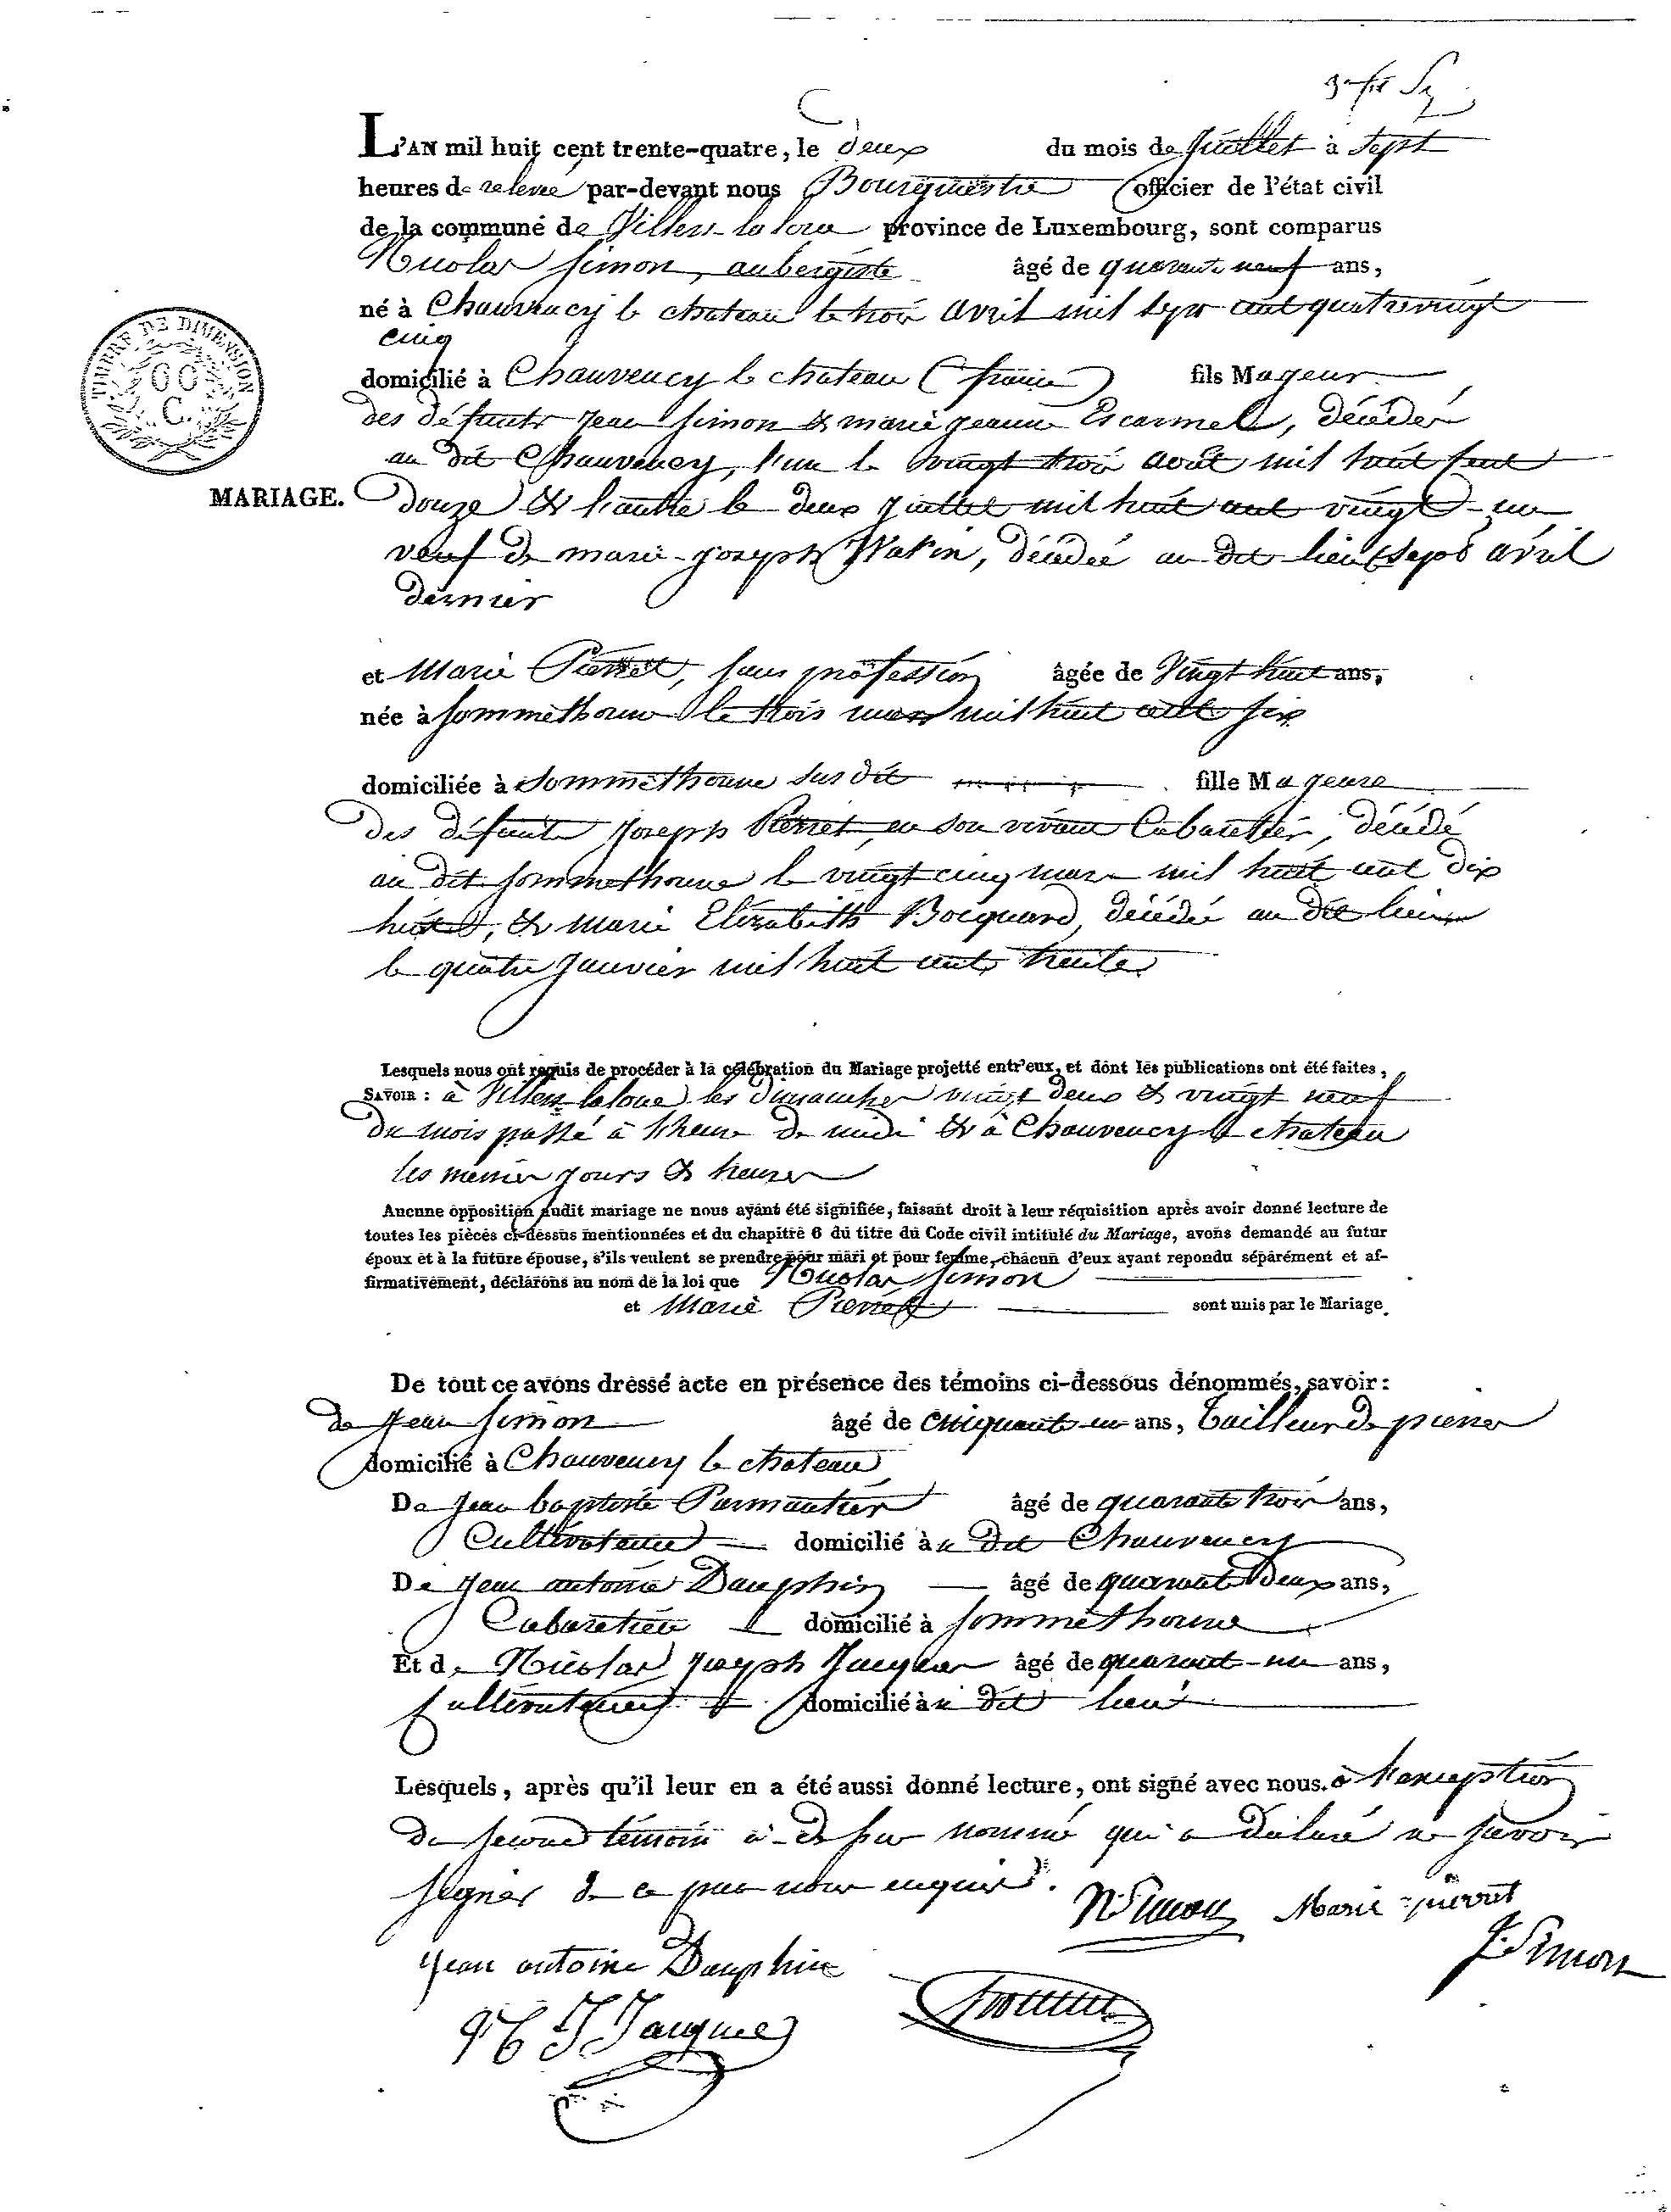 L'AN mil huit cent trente-quatre, le deux du mois de juillet à Sept
heures de relevée par-devant nous Bourguestre officier de l'état civil
de la commune de Villers-la loue province de Luxembourg, sont comparus
Nicolas Simon, aubergiste âgé de quarante neuf ans,
né à Chauvency le chateau le trois avril mil sept cent quatre vingt
cinq
domicilié à Chauvency le chateau (france) fils Majeur
des défunts jean Simon & marie jeanne Escarmel, décédés
au dit Chauvency, l'un le vingt trois août mil huit cent
douze & l'autre le deux juillet mil huit cent vingt-un
veuf de marie-joseph Watin, décédée au dit lieu le sept avril
dernier
TIMBRE DE DIMENSION
60
C.
MARIAGE.
et Marie Pierret, sans profession âgée de Vingt huit ans,
née à Sommethonne le trois mars mil huit cent six
domiciliée à Sommethonne sus dit fille Majeure
des défunts joseph Pierret, en son vivant Cabaretier, décédé
au dit Sommethonne le vingt cinq mars mil huit cent dix
huit, & marie Elizabeth Bocquard, décédée au dit lieu
le quatre janvier mil huit cent trente
Lesquels nous ont requis de procéder à la célébration du Mariage projetté entr'eux, et dont les publications ont été faites,
SAVOIR : à Villers-laloue les dimanches vingt deux & vingt neuf
du mois passé à l'heure de midi & à Chauvency le chateau
les mêmes jours & heures
Aucune opposition audit mariage ne nous ayant été signifiée, faisant droit à leur réquisition après avoir donné lecture de
toutes les pièces ci-dessus mentionnées et du chapitre 6 du titre du Code civil intitulé du Mariage, avons demandé au futur
époux et à la future épouse, s'ils veulent se prendre pour mari et pour femme, chacun d'eux ayant repondu séparément et af-
firmativement, déclarons au nom de la loi que Nicolas Simon
et Marie Pierret sont unis par le Mariage.
De tout ce avons dressé acte en présence des témoins ci-dessous dénommés, savoir :
de Jean Simon âgé de Cinquante un ans, tailleur de pierres
domicilié à Chauvency le chateau
De jean baptiste Parmantier âgé de quarante trois ans,
Cultivateur domicilié au dit Chauvency
De jean antoine Dauphin âgé de quarante deux ans,
Cabaretier domicilié à Sommethonne
Et de Nicolas joseph Jacques âgé de quarante-un ans,
Cultivateur domicilié au dit lieu
Lesquels, après qu'il leur en a été aussi donné lecture, ont signé avec nous. à l'exception
du second témoin ci-dessus nommé qui a déclaré ne savoir
signer de ce par nous enquis.
N. Simon Marie pierret
J. Simon
jean antoine Dauphin
N J Jacques